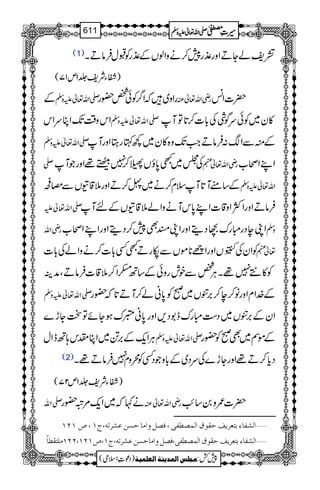 سیرتِ مصطفیٰ صلی اللہ تعالیٰ علیہ وسلم 611
تشریف لے جاتے اور عذر پیش کرنے والوں کے عذر کو قبول فرماتے۔ (1)
(شفاء شریف جلد۱ ص۷۱)
حضرت انس رضی اللہ تعالیٰ عنہ راوی ہیں کہ اگر کوئی شخص حضور صلی اللہ تعالیٰ علیہ وسلم کے
کان میں کوئی سرگوشی کی بات کرتا تو آپ صلی اللہ تعالیٰ علیہ وسلم اس وقت تک اپنا سر اس
کے منہ سے الگ نہ فرماتے جب تک وہ کان میں کچھ کہتا رہتا اور آپ صلی اللہ تعالیٰ علیہ وسلم
اپنے اصحاب رضی اللہ تعالیٰ عنہم کی مجلس میں کبھی پاؤں پھیلا کر نہیں بیٹھتے تھے اور جو آپ صلی
اللہ تعالیٰ علیہ وسلم کے سامنے آتا آپ سلام کرنے میں پہل کرتے اور ملاقاتیوں سے مصافحہ
فرماتے اور اکثر اوقات اپنے پاس آنے والے ملاقاتیوں کے لئے آپ صلی اللہ تعالیٰ علیہ
وسلم اپنی چادر مبارک بچھا دیتے اور اپنی مسند بھی پیش کر دیتے اور اپنے اصحاب رضی اللہ
تعالیٰ عنہم کو ان کی کنیتوں اور اچھے ناموں سے پکارتے کبھی کسی بات کرنے والے کی بات
کو کاٹتے نہیں تھے۔ ہر شخص سے خوش روئی کے ساتھ مسکرا کر ملاقات فرماتے، مدینہ
کے خدام اور نوکر چاکر برتنوں میں صبح کو پانی لے کر آتے تاکہ حضور صلی اللہ تعالیٰ علیہ وسلم
ان کے برتنوں میں دست مبارک ڈبو دیں اور پانی متبرک ہو جائے تو سخت جاڑے
کے موسم میں بھی صبح کو حضور صلی اللہ تعالیٰ علیہ وسلم ہر ایک کے برتن میں اپنا مقدس ہاتھ ڈال
دیا کرتے تھے اور جاڑے کی سردی کے باوجود کسی کو محروم نہیں فرماتے تھے۔ (2)
(شفاء شریف جلد۱ ص۷۲)
حضرت عمرو بن سائب رضی اللہ تعالیٰ عنہ نے کہا کہ میں ایک مرتبہ حضور صلی اللہ
1.....الشفاء بتعریف حقوق المصطفی، فصل واما حسن عشرته، ج۱، ص ۱۲۱
2.....الشفاء بتعریف حقوق المصطفی، فصل واما حسن عشرته، ج۱، ص۱۲۱، ۱۲۲ ملتقطاً
پیش کش: مجلس المدینۃ العلمیۃ (دعوتِ اسلامی)